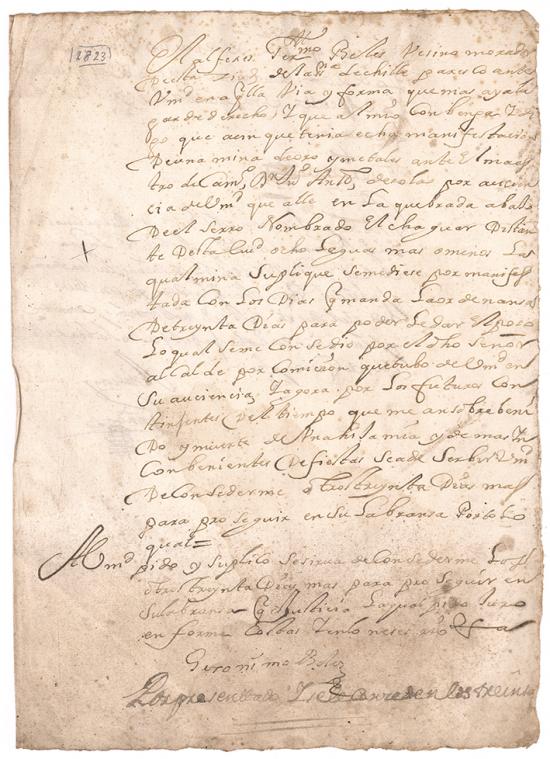 2823
El alferes Germo Beles Vesino morador
Desta Ziud de la de chille paresco ante
Vmd en aqlla Via y forma que mas aya lu
gar de derecho, y que al mio conbenga
po que aunque tenia echa manifestacion
De una mina de oro y metales ante El maes
tro de Camo por ausen
cia de Vmd que alle en La quebrada abajo
De el Serro Nombrado El chaguar Distan
te Desta Ciud ocho Leguas mas o menos La
qual mina Suplique Se me diese por manifes
tada con Los Dias q manda La ordenansa
De treynta Dias para poder Le dar El poso
Lo qual Se me Consedio por el dho Señor
alcalde por Comicion que tubo de Vmd en
Su auciencia, y agora por Los futuros con
tinjentes Del tiempo que me an sobrebeni
Do y muerte de Una hija mia y demas yn
conbenientes De fiestas Se a de Serbir Vmd
De Consederme otros treynta Dias mas
para proseguir en Su Labransa Por to Lo
qual=
A Vmd pido y Suplico Se sirua de Consederme Los
otros treynta Dias mas para proseguir en
Su labransa q es Justicia La qual pido Juro
en forma Costas y en lo nesesario &a
Geronimo Belez
Por presentado y se conseden los treinta